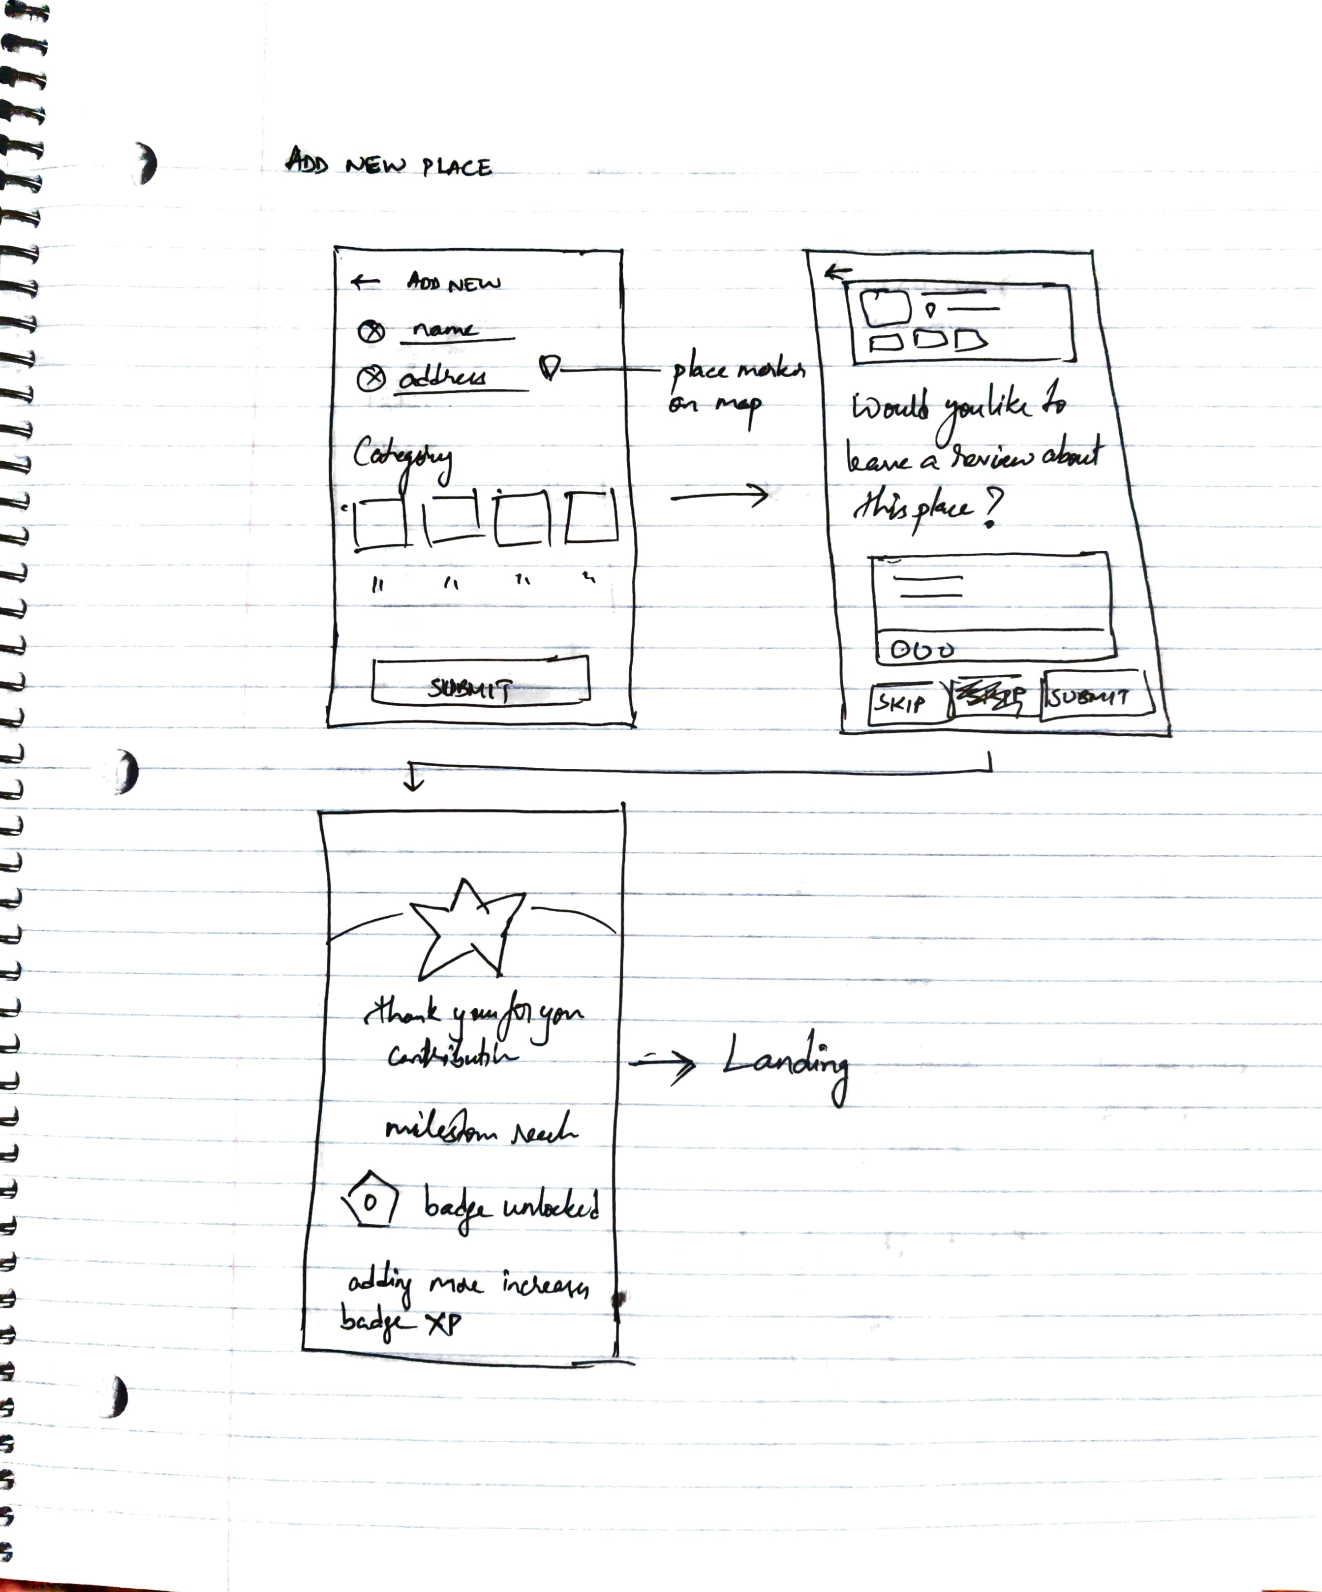 ADD NEW PLACE
← ADD NEW
name
address
place marker
on map
Category
SUBMIT
Would you like to
leave a review about
this place?
SKIP
SUBMIT
thank you for you
contribution
milestone reach
badge unlocked
adding more increases
badge XP
→ Landing